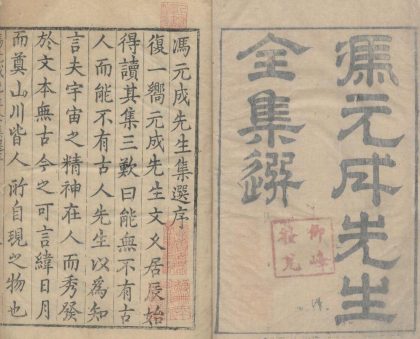 馮元成先生
全集選
馮元成先生集選序
復一嚮元成先生文久居辰始
得讀其集三歎曰能無不有古
人而能不有古人先生以為知
言夫宇宙之精神在人而秀發
於文本無古今之可言緯日月
而奠山川皆人所自現之物也